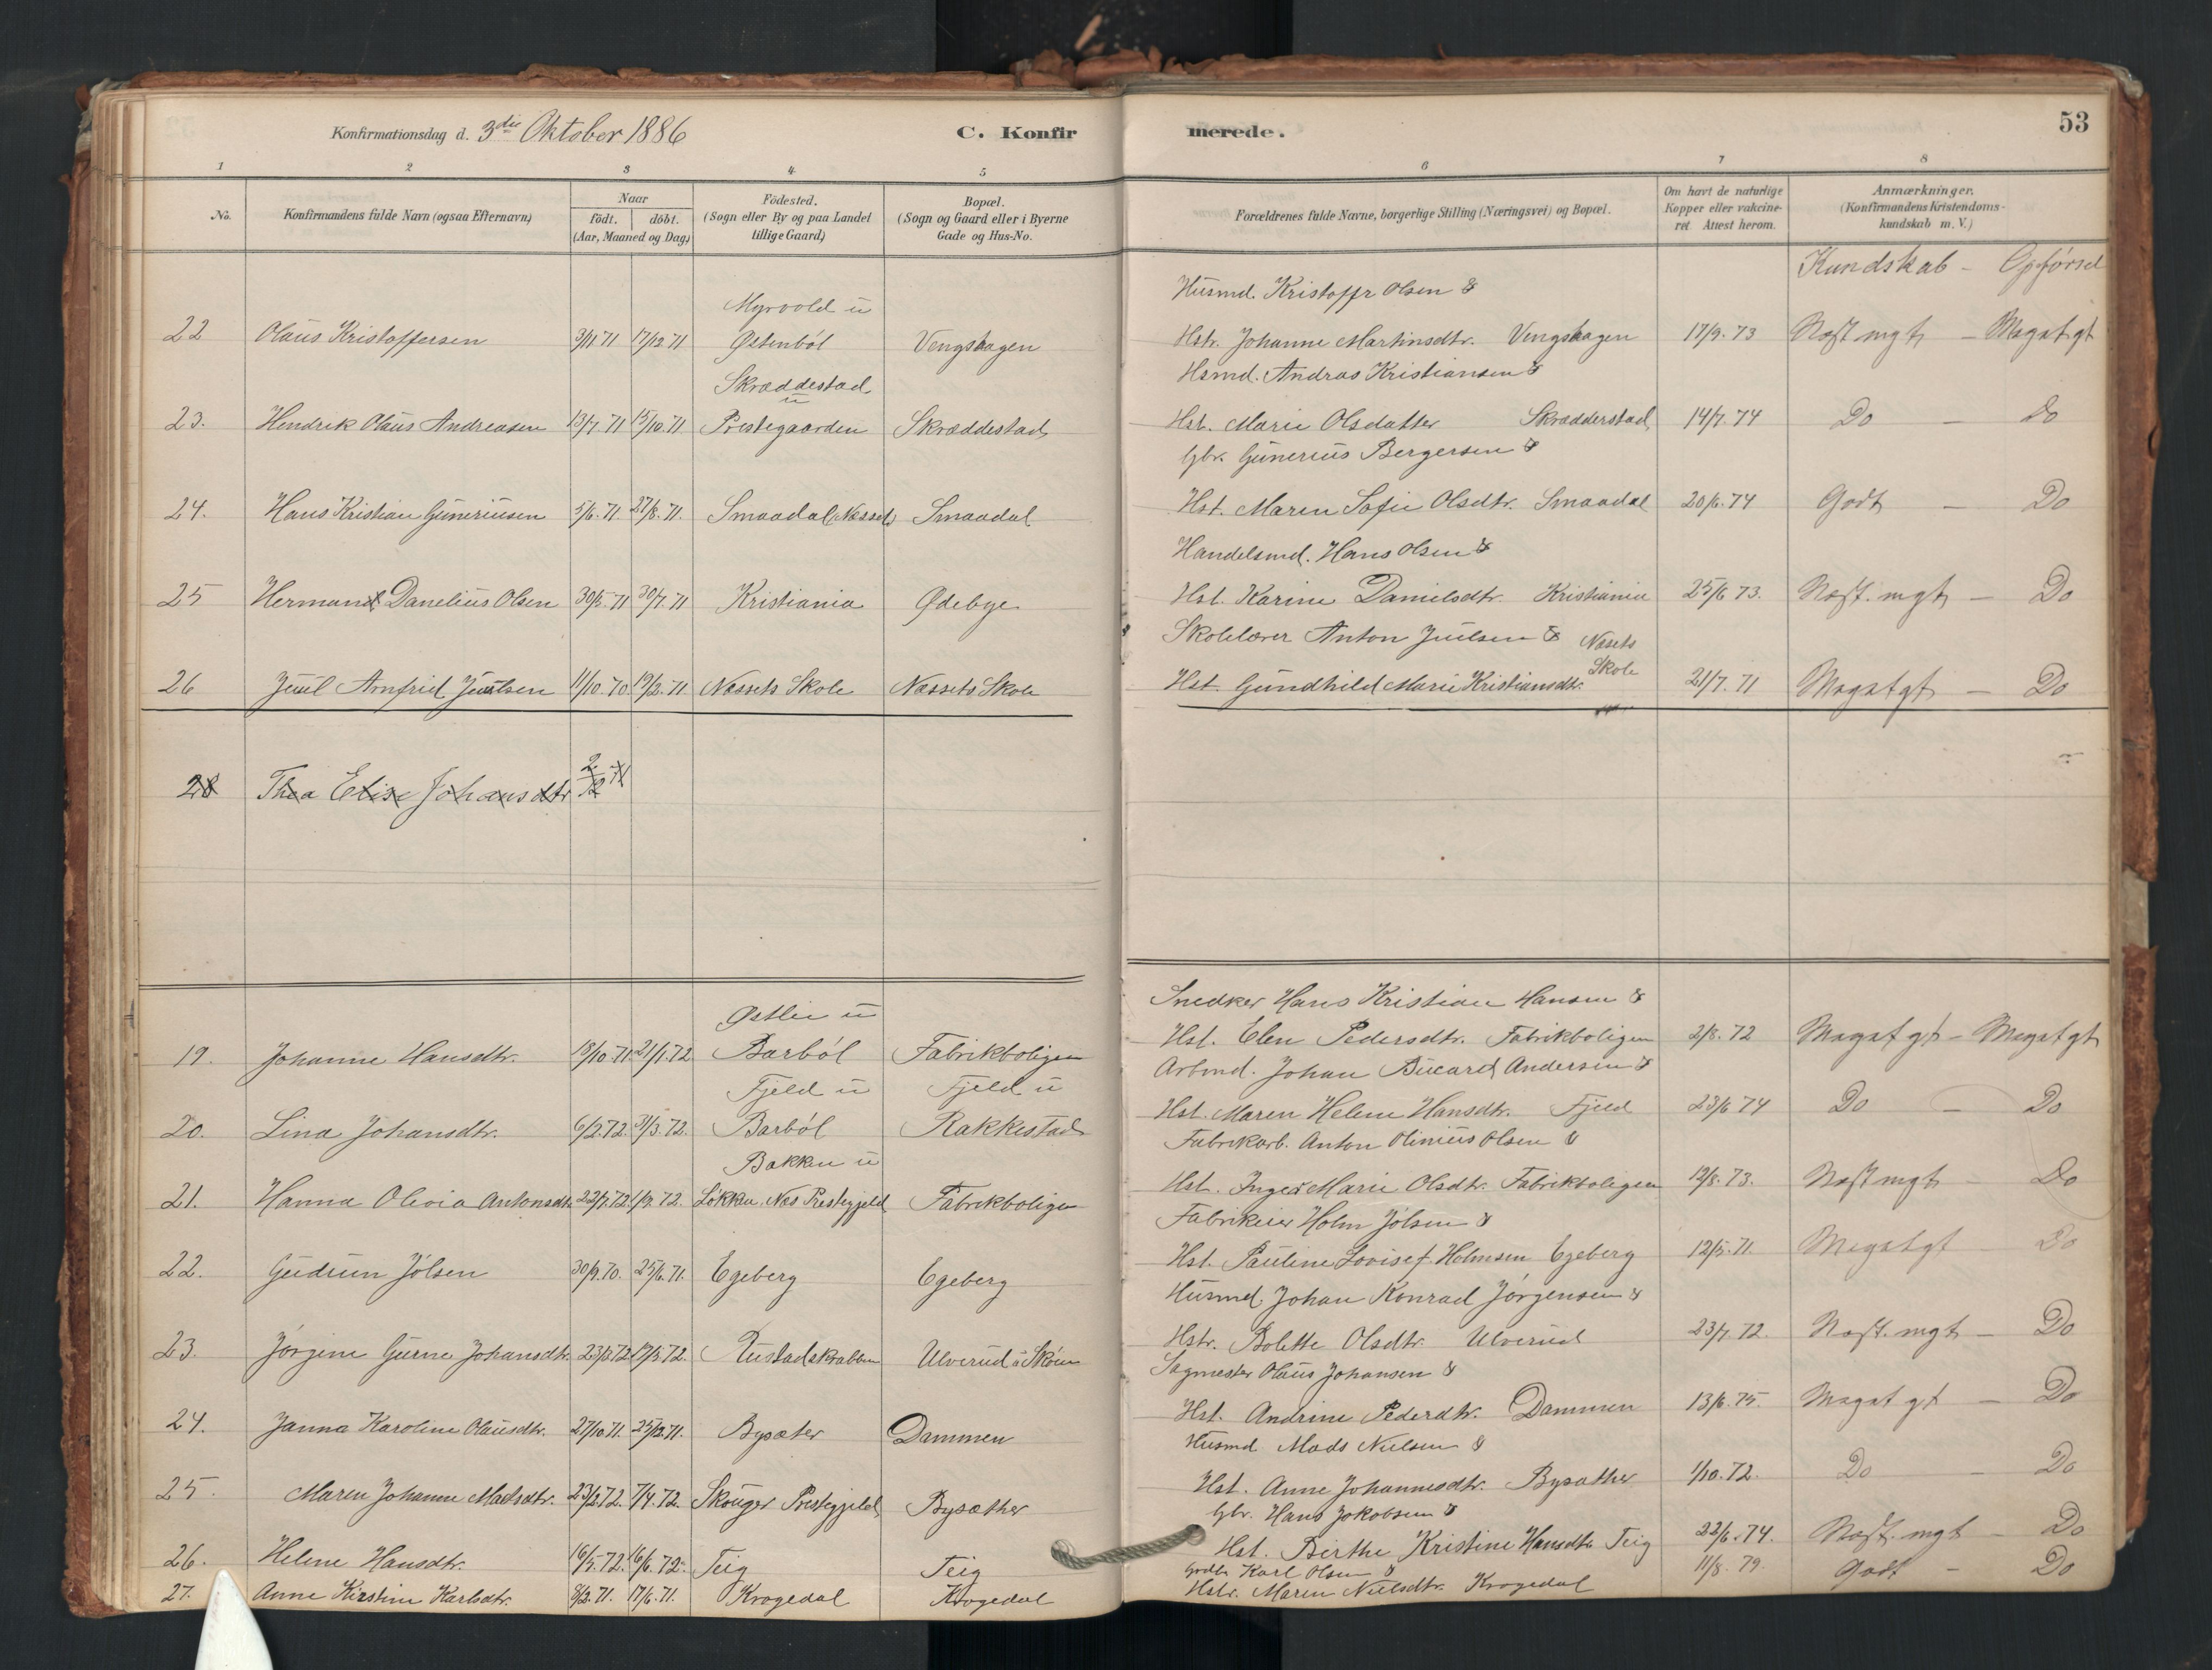 Konfirmationsdag d. 3die Oktober 1886
C. Konfir
merede.
53
1 2 3 4 5 6 7 8
No.
Konfirmandens fulde Navn (ogsaa Efternavn)
Naar
födt. döbt.
(Aar, Maaned og Dag)
Födested.
(Sogn eller By og paa Landet
tillige Gaard)
Bopæl.
(Sogn og Gaard eller i Byerne
Gade og Hus-No.
Forældrenes fulde Navne, borgerlige Stilling (Næringsvei) og Bopæl.
Om havt de naturlige
Kopper eller vakcine-
ret. Attest herom.
Anmærkninger.
(Konfirmandens Kristendoms-
kundskab m. V.)
Kundskab - Opförsel
Husmd. Kristoffr Olsen &
Myrvold u
22 Olaus Kristoffersen 3/11 71 17/12 71 Østenböl Vengshagen Hstr. Johanne Martinsdtr. Vengshagen 17/9. 73 Næst mgt - Megatgt
Skræddestad Hsmd. Andras Kristiansen &
u
23. Hendrik Olaus Andreasen 13/7. 71 15/10. 71 Prestegaarden Skræddestad Hst. Marie Olsdatter Skrædderstad 14/7. 74 Do - Do
Gbr. Gunerius Bergersen &
24. Hans Kristian Guneriusen 5/6. 71. 27/8. 71. Smaadal (Nesset) Smaadal Hst. Maren Sofie Olsdtr. Smaadal 20/6. 74 Godt - Do
Handelsmd. Hans Olsen &
25 Herman Danelius Olsen 30/5. 71 30/7. 71 Kristiania Ødebye Hst. Karine Danielsdtr. Kristiania 25/6 73. Næst. mgt - Do
Skolelærer Anton Juulsen & Næsets
Skole
26 Juul Arnfrid Juulsen 11/10. 70 19/2. 71 Næssets Skole Næssets Skole Hst. Gundhild Marie Kristiansdtr. 21/7. 71 Megatgt - Do
28 Thea Elise Johansdtr 2/12 71
Snedker Hans Kristian Hansen &
Østlie u
19. Johanne Hansdtr. 18/10. 71. 21/1. 72 Barböl Fabrikboligen Hst. Elen Pedersdtr. Fabrikboligen 2/8. 72 Megatgt - Megatgt
Fjeld u Fjeld u Arbmd. Johan Bucard Andersen &
20. Lina Johansdtr. 6/2. 72. 31/3. 72. Barböl Rakkestad Hst. Maren Helene Hansdtr. Fjeld 23/6 74 Do - Do
Bakken u Fabrikarb. Anton Olinius Olsen &
21. Hanna Olivia Antonsdtr. 22/7. 72. 1/9. 72. Løkka, Næs Prestegjeld Fabrikboligen Hst. Inger Marie Olsdtr. Fabrikboligen 12/8. 73. Næst mgt - Do
Fabrikeier Holm Jölsen &
22. Gudrun Jölsen 30/9. 70. 25/6. 71. Egeberg Egeberg Hst. Pauline Lovise f. Holmsen Egeberg 12/5. 71. Megatgt Do
Husmd. Johan Konrad Jörgensen &
23. Jörgine Gurine Johansdtr. 23/3. 72 17/5. 72. Rustadskrabben Ulverud u Skóien Hstr. Bolette Olsdtr. Ulverud 23/7. 72. Næst. mgt - Do
Sagmester Olaus Johansen &
24. Janna Karoline Olausdtr. 27/10. 71. 25/12. 71. Bysæter Dammen Hst. Andrine Pederdtr. Dammen 13/6. 75. Megatgt - Do
Husmd. Mads Nielsen &
25. Maren Johanne Madsdtr. 23/2. 72. 7/4. 72. Skouger Prestegjeld Bysæther Hst. Anne Johannesdtr. Bysæther 1/10. 72. Do - Do
Gbr. Hans Jakobsen &
26. Helene Hansdtr. 16/5. 72. 16/6. 72. Teig Teig Hst. Birthe Kristine Hansdtr. Teig 22/6. 74. Næst. mgt - Do
Gaardbr. Karl Olsen &
27. Anne Kirstine Karlsdtr. 8/2. 71. 17/6. 71. Krogedal Krogedal Hstr. Maren Nielsdtr. Krogedal 11/8. 79. Godt - Do